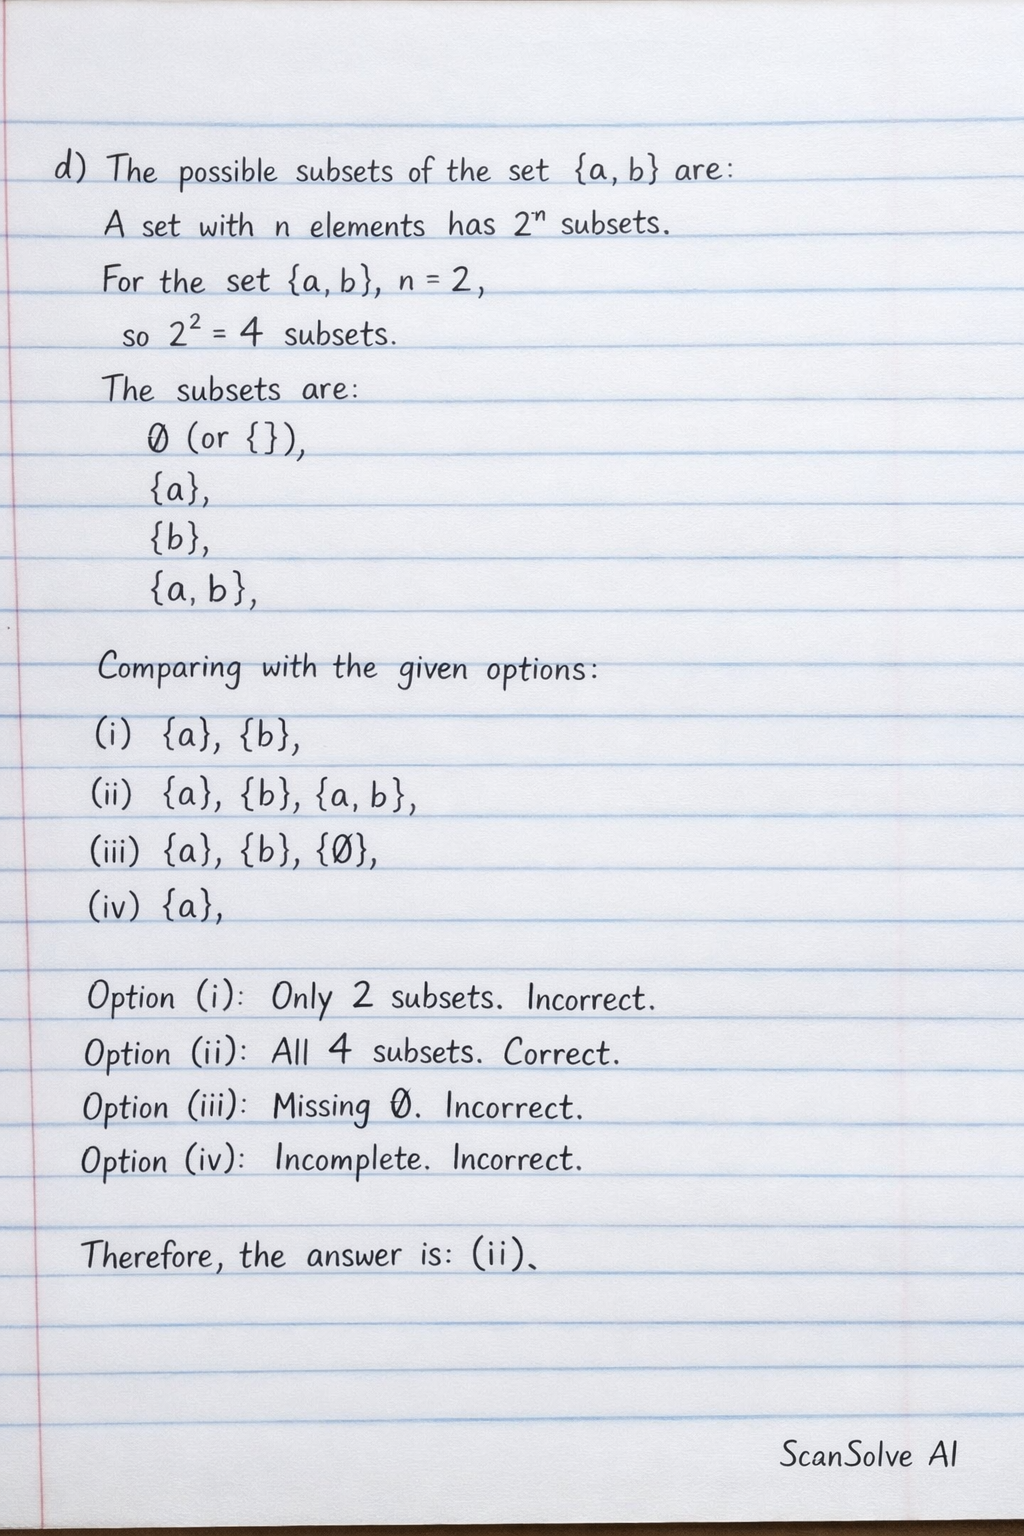 d) The possible subsets of the set {a, b} are:
A set with n elements has 2ⁿ subsets.
For the set {a, b}, n = 2,
so 2² = 4 subsets.
The subsets are:
Ø (or {}),
{a},
{b},
{a, b},
Comparing with the given options:
(i) {a}, {b},
(ii) {a}, {b}, {a, b},
(iii) {a}, {b}, {Ø},
(iv) {a},
Option (i): Only 2 subsets. Incorrect.
Option (ii): All 4 subsets. Correct.
Option (iii): Missing Ø. Incorrect.
Option (iv): Incomplete. Incorrect.
Therefore, the answer is: (ii).
ScanSolve AI